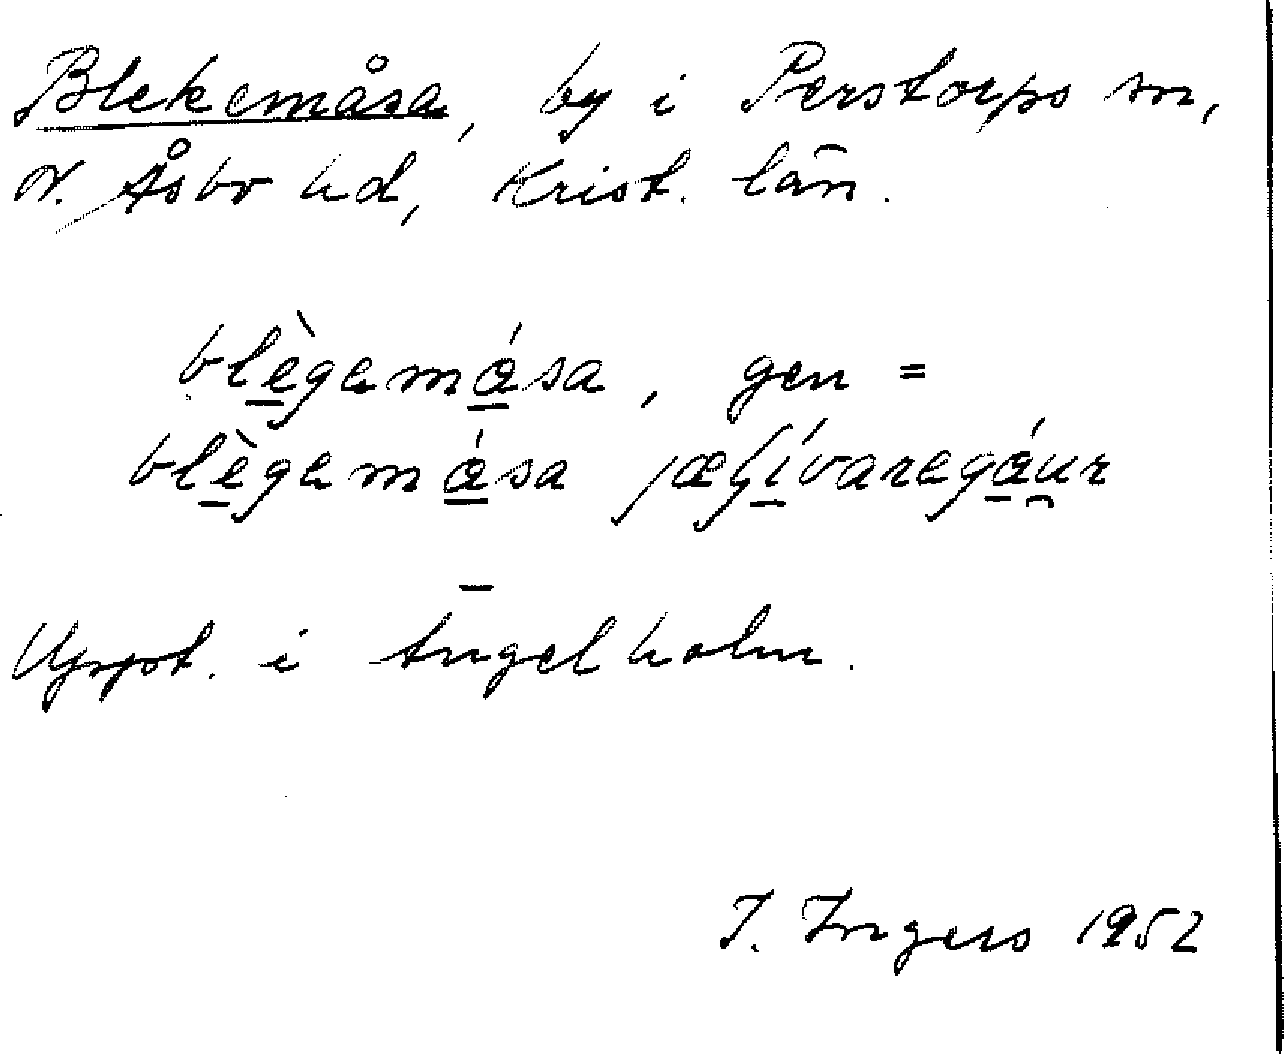 Blekemåsa, by i Perstorps sn,
N. Åsbo hd, Krist. län.
blègemása, gen =
blègemása
Uppt. i Ängelholm.
I. Ingers 1952